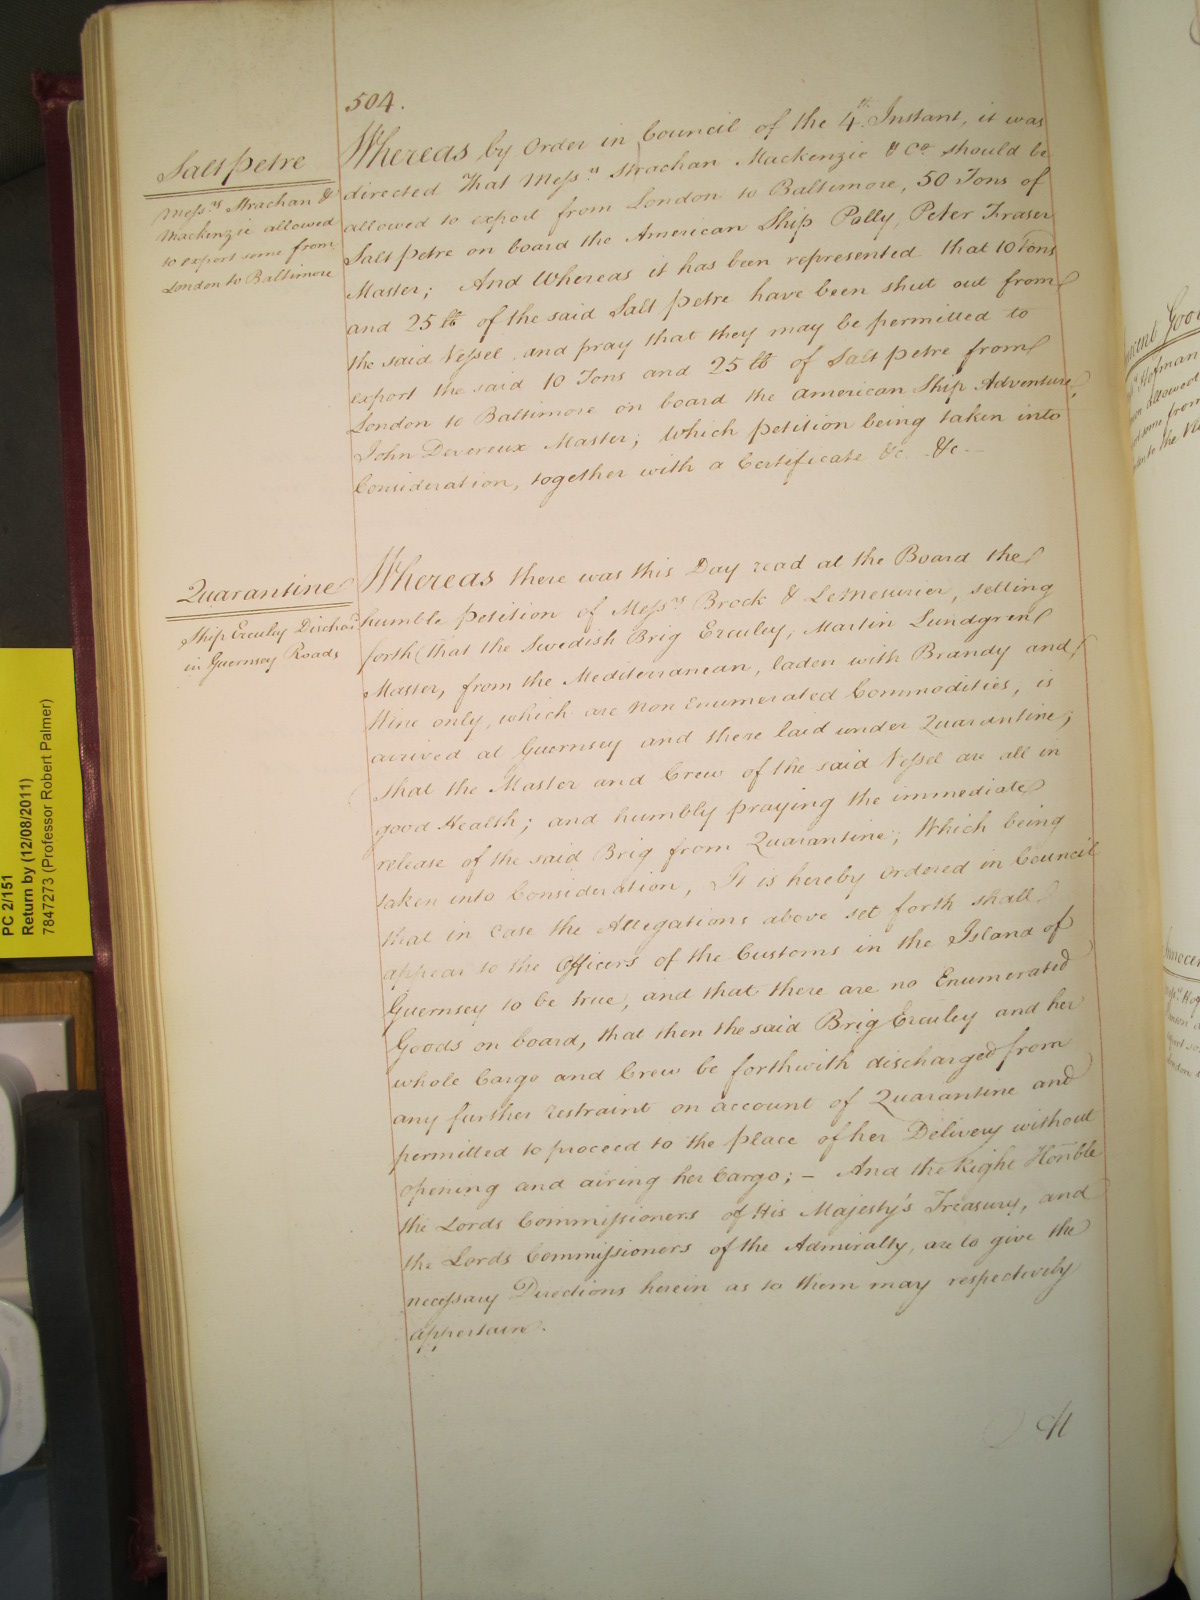 504.
Salt petre
Mess.rs Strachan &
Mackenzie allowed
to export some from
London to Baltimore
Whereas by Order in Council of the 4.th Instant, it was
directed That Mess.rs Strachan Mackenzie & Co. should be
allowed to export from London to Baltimore, 50 Tons of
Salt petre on board the American Ship Polly, Peter Fraser
Master; And Whereas it has been represented that 10 Tons
and 25 lb of the said Salt petre have been shut out from
the said Vessel and pray that they may be permitted to
export the said 10 Tons and 25 lb of Salt petre from
London to Baltimore on board the American Ship Adventure,
John Devereux Master; Which petition being taken into
Consideration, together with a Certificate &c. &c.
Quarantine
Ship Erculey Dischad
in Guernsey Roads
Whereas there was this Day read at the Board the
humble petition of Mess.rs Brock & LeMesurier, setting
forth (that the Swedish Brig Erculey, Martin Lundgren
Master, from the Mediterranean, laden with Brandy and
Wine only, which are non Enumerated Commodities, is
arrived at Guernsey and there laid under Quarantine;
that the Master and Crew of the said Vessel are all in
good Health; and humbly praying the immediate
release of the said Brig from Quarantine; Which being
taken into Consideration, It is hereby ordered in Council
that in case the Allegations above set forth shall
appear to the Officers of the Customs in the Island of
Guernsey to be true, and that there are no Enumerated
Goods on board, that then the said Brig Erculey and her
whole Cargo and Crew be forthwith discharged from
any further restraint on account of Quarantine and
permitted to proceed to the place of her Delivery without
opening and airing her Cargo; – And the Right Honble
the Lords Commissioners of His Majesty's Treasury, and
the Lords Commissioners of the Admiralty, are to give the
necessary Directions herein as to them may respectively
appertain.
PC 2/151
Return by (12/08/2011)
7847273 (Professor Robert Palmer)
Hofman
allowed
some from